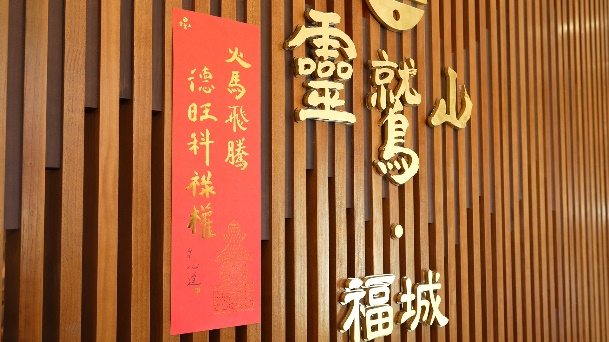 火馬飛騰
德旺科祿權
靈鷲山
福城